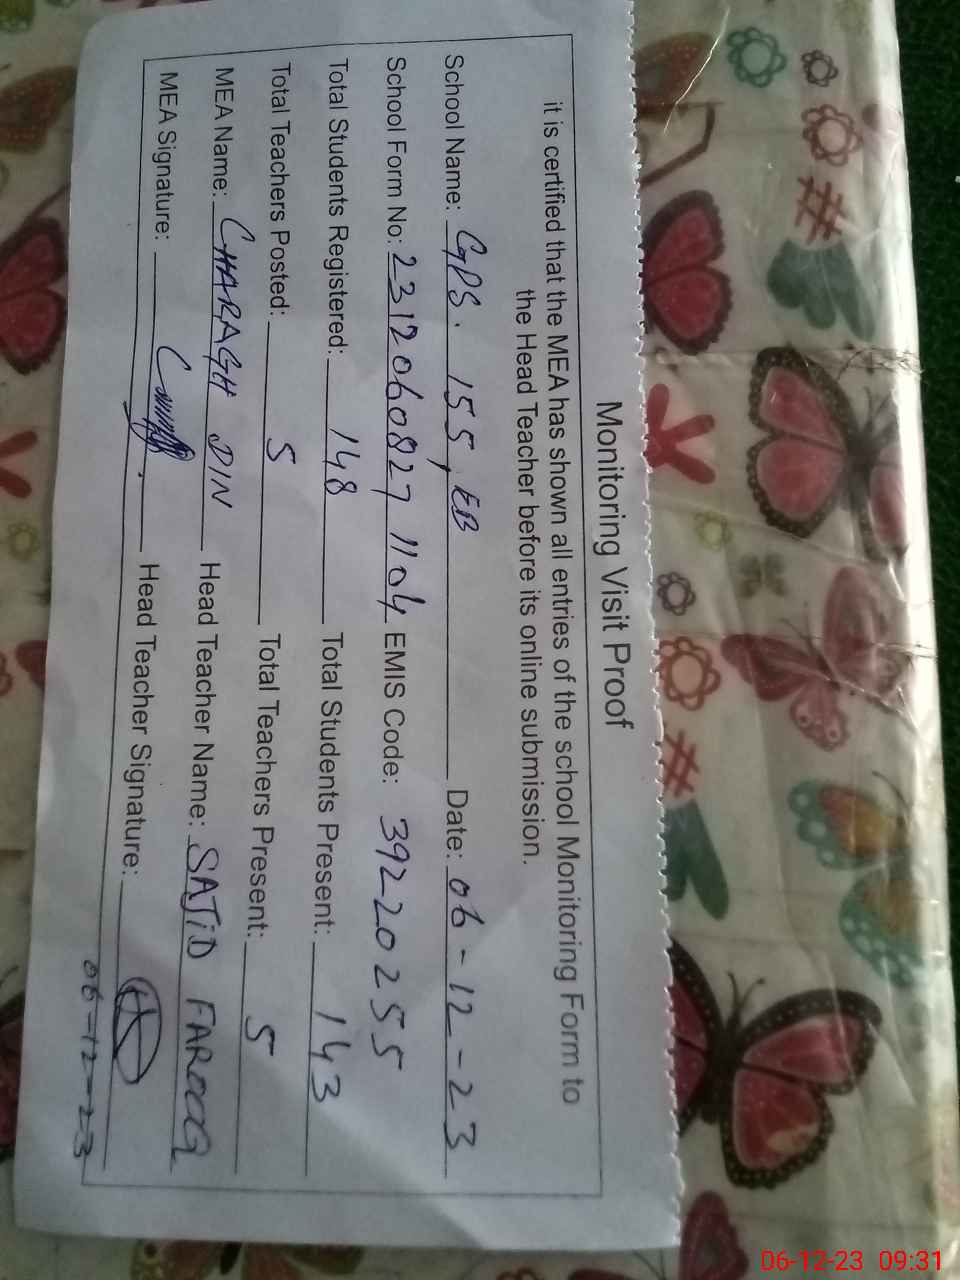 Monitoring Visit Proof
it is certified that the MEA has shown all entries of the school Monitoring Form to
the Head Teacher before its online submission.
School Name: GPS. 155, EB Date: 06-12-23
School Form No: 2312060827 1104 EMIS Code: 39220255
Total Students Registered: 148 Total Students Present: 143
Total Teachers Posted: 5 Total Teachers Present: 5
MEA Name: CHARAGH DIN Head Teacher Name: SAJiD FAROOQ
MEA Signature: Head Teacher Signature:
06-12-23
06-12-23 09:31